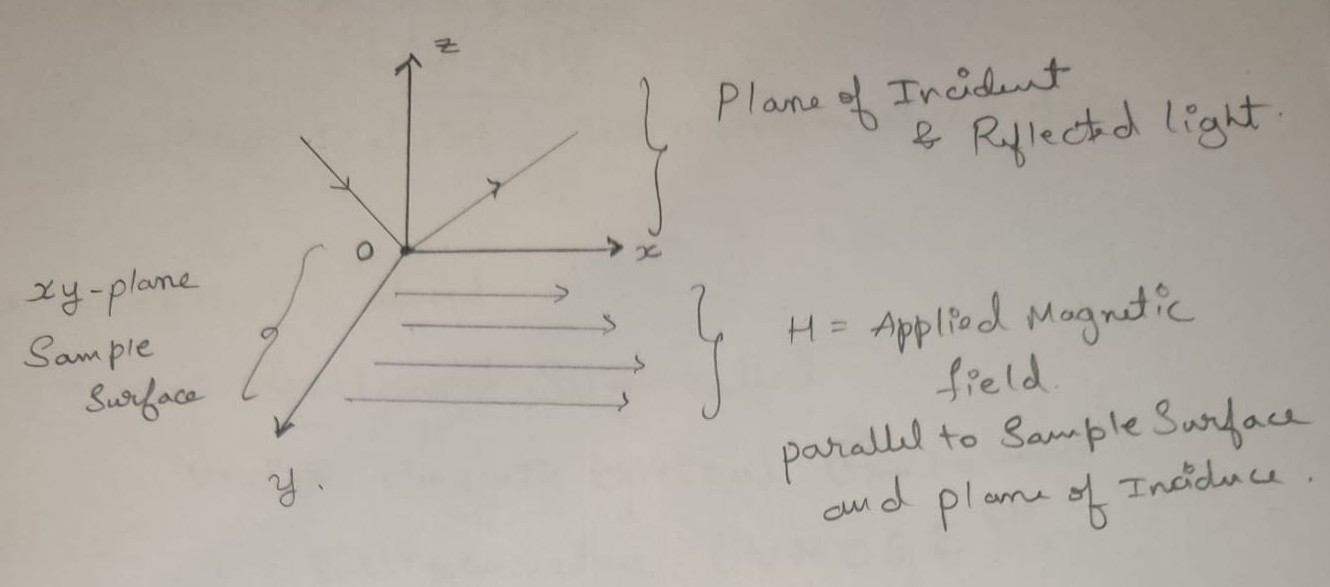 z
Plane of Incident
& Reflected light.
O
x
xy-plane
Sample
Surface
H = Applied Magnetic
field.
parallel to Sample Surface
and plane of Incidence.
y.